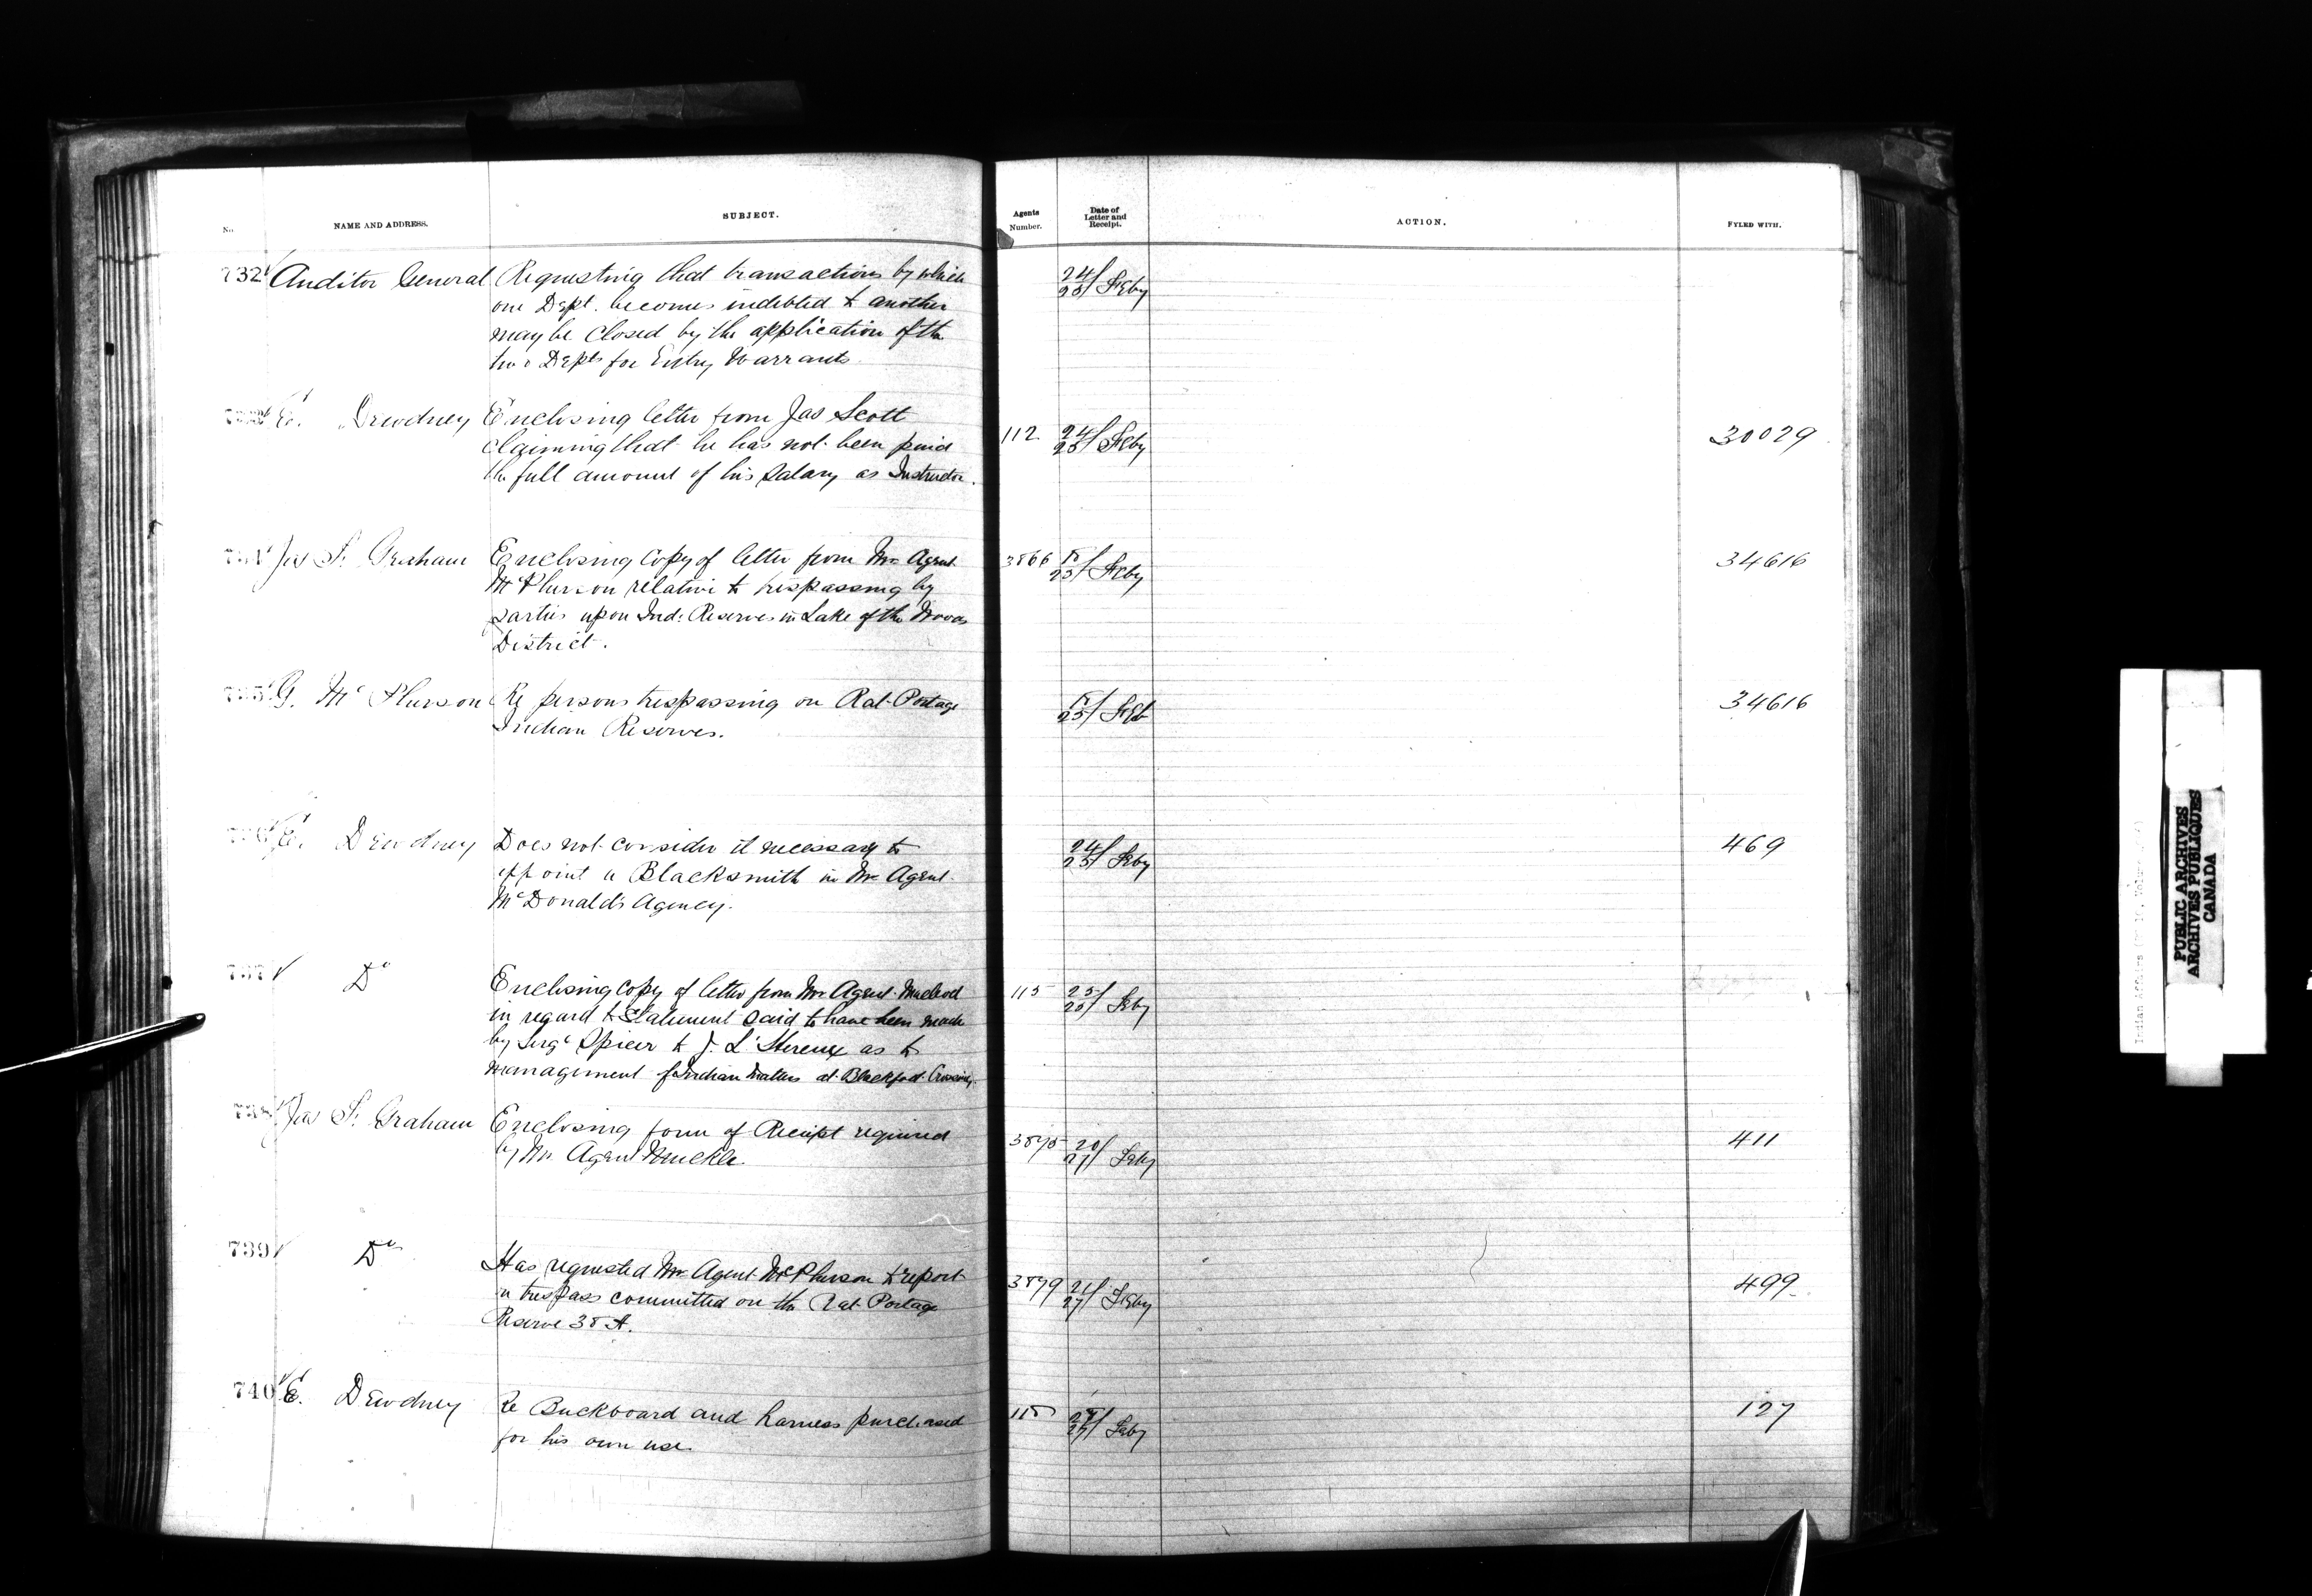 No.
NAME AND ADDRESS.
SUBJECT.
Agents
Number.
Date of
Letter and
Receipt.
ACTION.
FYLED WITH.
732 Auditor General Requesting that transactions by which 24/25 Feby
one Dept. becomes indebted to another
may be closed by the application of the
two Depts for Entry Warrants.
733 E. Dewdney Enclosing letter from Jas Scott 112 24/25 Feby 30029
claiming that he has not been paid
the full amount of his salary as Instructor.
734 Jas F. Graham Enclosing copy of letter from Mr Agent 3866 18/25 Feby 34616
McPherson relative to trespassing by
parties upon Ind: Reserves in Lake of the Woods
District.
735 G. McPherson Re persons trespassing on Rat Portage 25 Feb 34616
Indian Reserves.
736 E. Dewdney Does not consider it necessary to 24/25 Feby 469
appoint a Blacksmith in Mr Agent
McDonald's Agency.
737 Do Enclosing copy of letter from Mr Agent Macleod 115 25/25 Feby
in regard to statement said to have been made
by Sergt Spicer to J. L'Hereux as to
management of Indian matters at Blackfoot Crossing.
738 Jas F. Graham Enclosing form of Receipt required 20/27 Feby 411
by Mr Agent Muckle.
739 Do Has requested Mr Agent McPherson to report 3879 21/27 Feby 499
a trespass committed on the Rat Portage
Reserve 38 A.
740 E. Dewdney Re Buckboard and harness purchased 27 Feby 127
for his own use.
PUBLIC ARCHIVES
ARCHIVES PUBLIQUES
CANADA